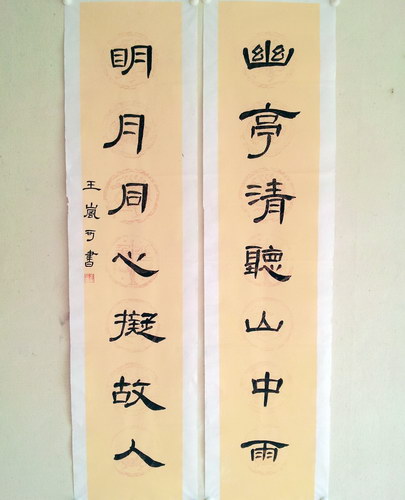 幽亭清聽山中雨
明月同心擬故人
王嵐可書